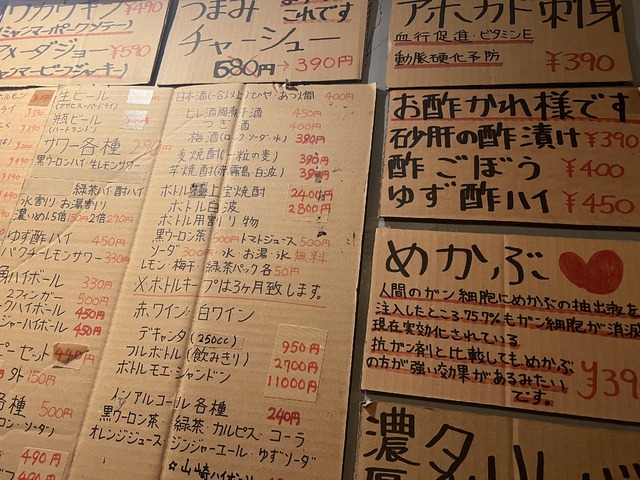 ¥490
(ミャンマーポークアテー)
アメーダジョー ¥590
(ミャンマービーフジャーキー)
つまみ
これです
チャーシュー
580円→390円
アボカド刺身
血行促進・ビタミンE
動脈硬化予防
¥390
お酢かれ様です
砂肝の酢漬け ¥390
酢ごぼう ¥400
ゆず酢ハイ ¥450
めかぶ
人間のガン細胞にめかぶの抽出液を
注入したところ75.7%もガン細胞が消滅
現在実効化されている
抗ガン剤と比較してもめかぶ
の方が強い効果があるみたい
です。
¥39
濃
生ビール
(アサヒスーパードライ)
瓶ビール
(ハートランド)
サワー各種
黒ウーロンハイ・生レモンサワー
緑茶ハイ・酎ハイ
水割り お湯割り
濃いめ1.5倍150円2倍290円
ゆず酢ハイ 450円
パクチーレモンサワー 330円
角ハイボール 330円
2フィンガー 500円
ハイボール 450円
ジャーハイボール 450円
セット
外150円
各種 500円
490円
日本酒(一合以上)ひや・あつ燗 400円
ヒレ酒 450円
400円
梅酒(ロック・ソーダ・水) 380円
麦焼酎(一粒の麦) 390円
芋焼酎(赤霧島・白波)
ボトル極上宝焼酎 2400円
ボトル白波 2800円
ボトル用割り物
黒ウーロン茶 500円トマトジュース 500円
ソーダ 300円・水・お湯・氷 無料
レモン・梅干・緑茶パック 各50円
※ボトルキープは3ヶ月致します。
赤ワイン・白ワイン
デキャンタ(250cc) 950円
フルボトル(飲みきり) 2700円
ボトルモエ・シャンドン 11000円
ノンアルコール各種 240円
黒ウーロン茶・緑茶・カルピス・コーラ
オレンジジュース・ジンジャーエール・ゆずソーダ
☆山崎ハイボール